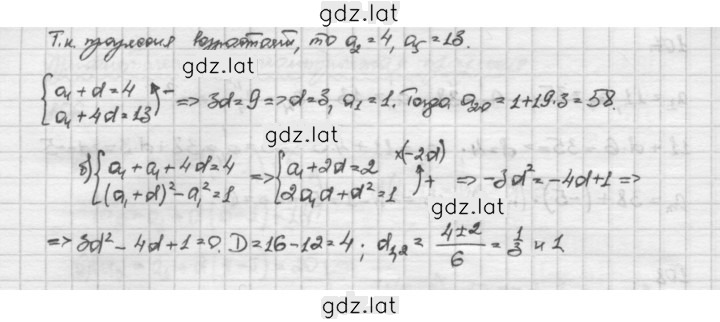 gdz.lat
Т.к. прогрессия возрастает, то a₂ = 4, a₅ = 13.
gdz.lat
{a₁ + d = 4
a₁ + 4d = 13 ) − => 3d = 9 => d = 3, a₁ = 1. Тогда a₂₀ = 1 + 19·3 = 58.
gdz.lat
б) {a₁ + a₁ + 4d = 4 => {a₁ + 2d = 2 ×(−2d)
(a₁ + d)² − a₁² = 1 2a₁d + d² = 1 + => −3d² = −4d + 1 =>
gdz.lat
=> 3d² − 4d + 1 = 0. D = 16 − 12 = 4; d₁,₂ = (4 ± 2)/6 = 1/3 и 1
gdz.lat